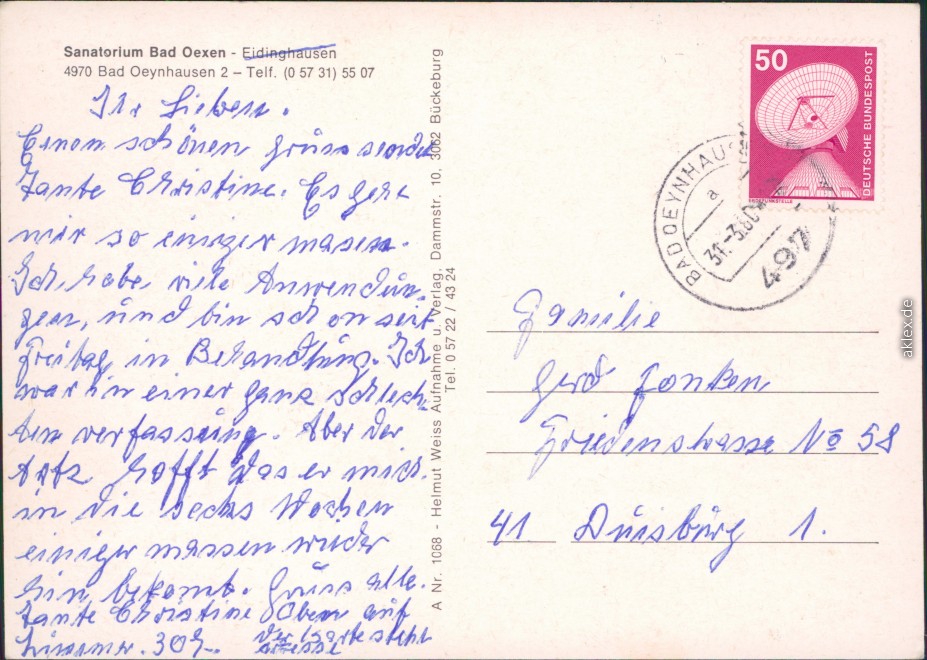 Sanatorium Bad Oexen - Eidinghausen
4970 Bad Oeynhausen 2 – Telf. (0 57 31) 55 07
Ihr Lieben.
Einen schönen grüss sendet
Tante Christine. Es geht
mir so einiger masen.
Ich habe viele Anwendün-
gen, und bin schon seit
Freitag in Behandlüng. Ich
war in einer ganz schlech-
ten verfassüng. Aber der
Artz hofft das er mich
in die sechs Wochen
einiger massen wieder
hin bekomt. Grüss alle.
Tante Christine Oben auf
Zimmer. 309. der Karte steht
A Nr. 1068 - Helmut Weiss Aufnahme u. Verlag, Dammstr. 10, 3062 Bückeburg
Tel. 0 57 22 / 43 24
50
DEUTSCHE BUNDESPOST
ERDEFUNKSTELLE
BAD OEYNHAUS
a
31.-3.80
497
Familie
Gerd Fonken
Friedenstrasse No 58
41 Düisbürg 1.
aklex.de